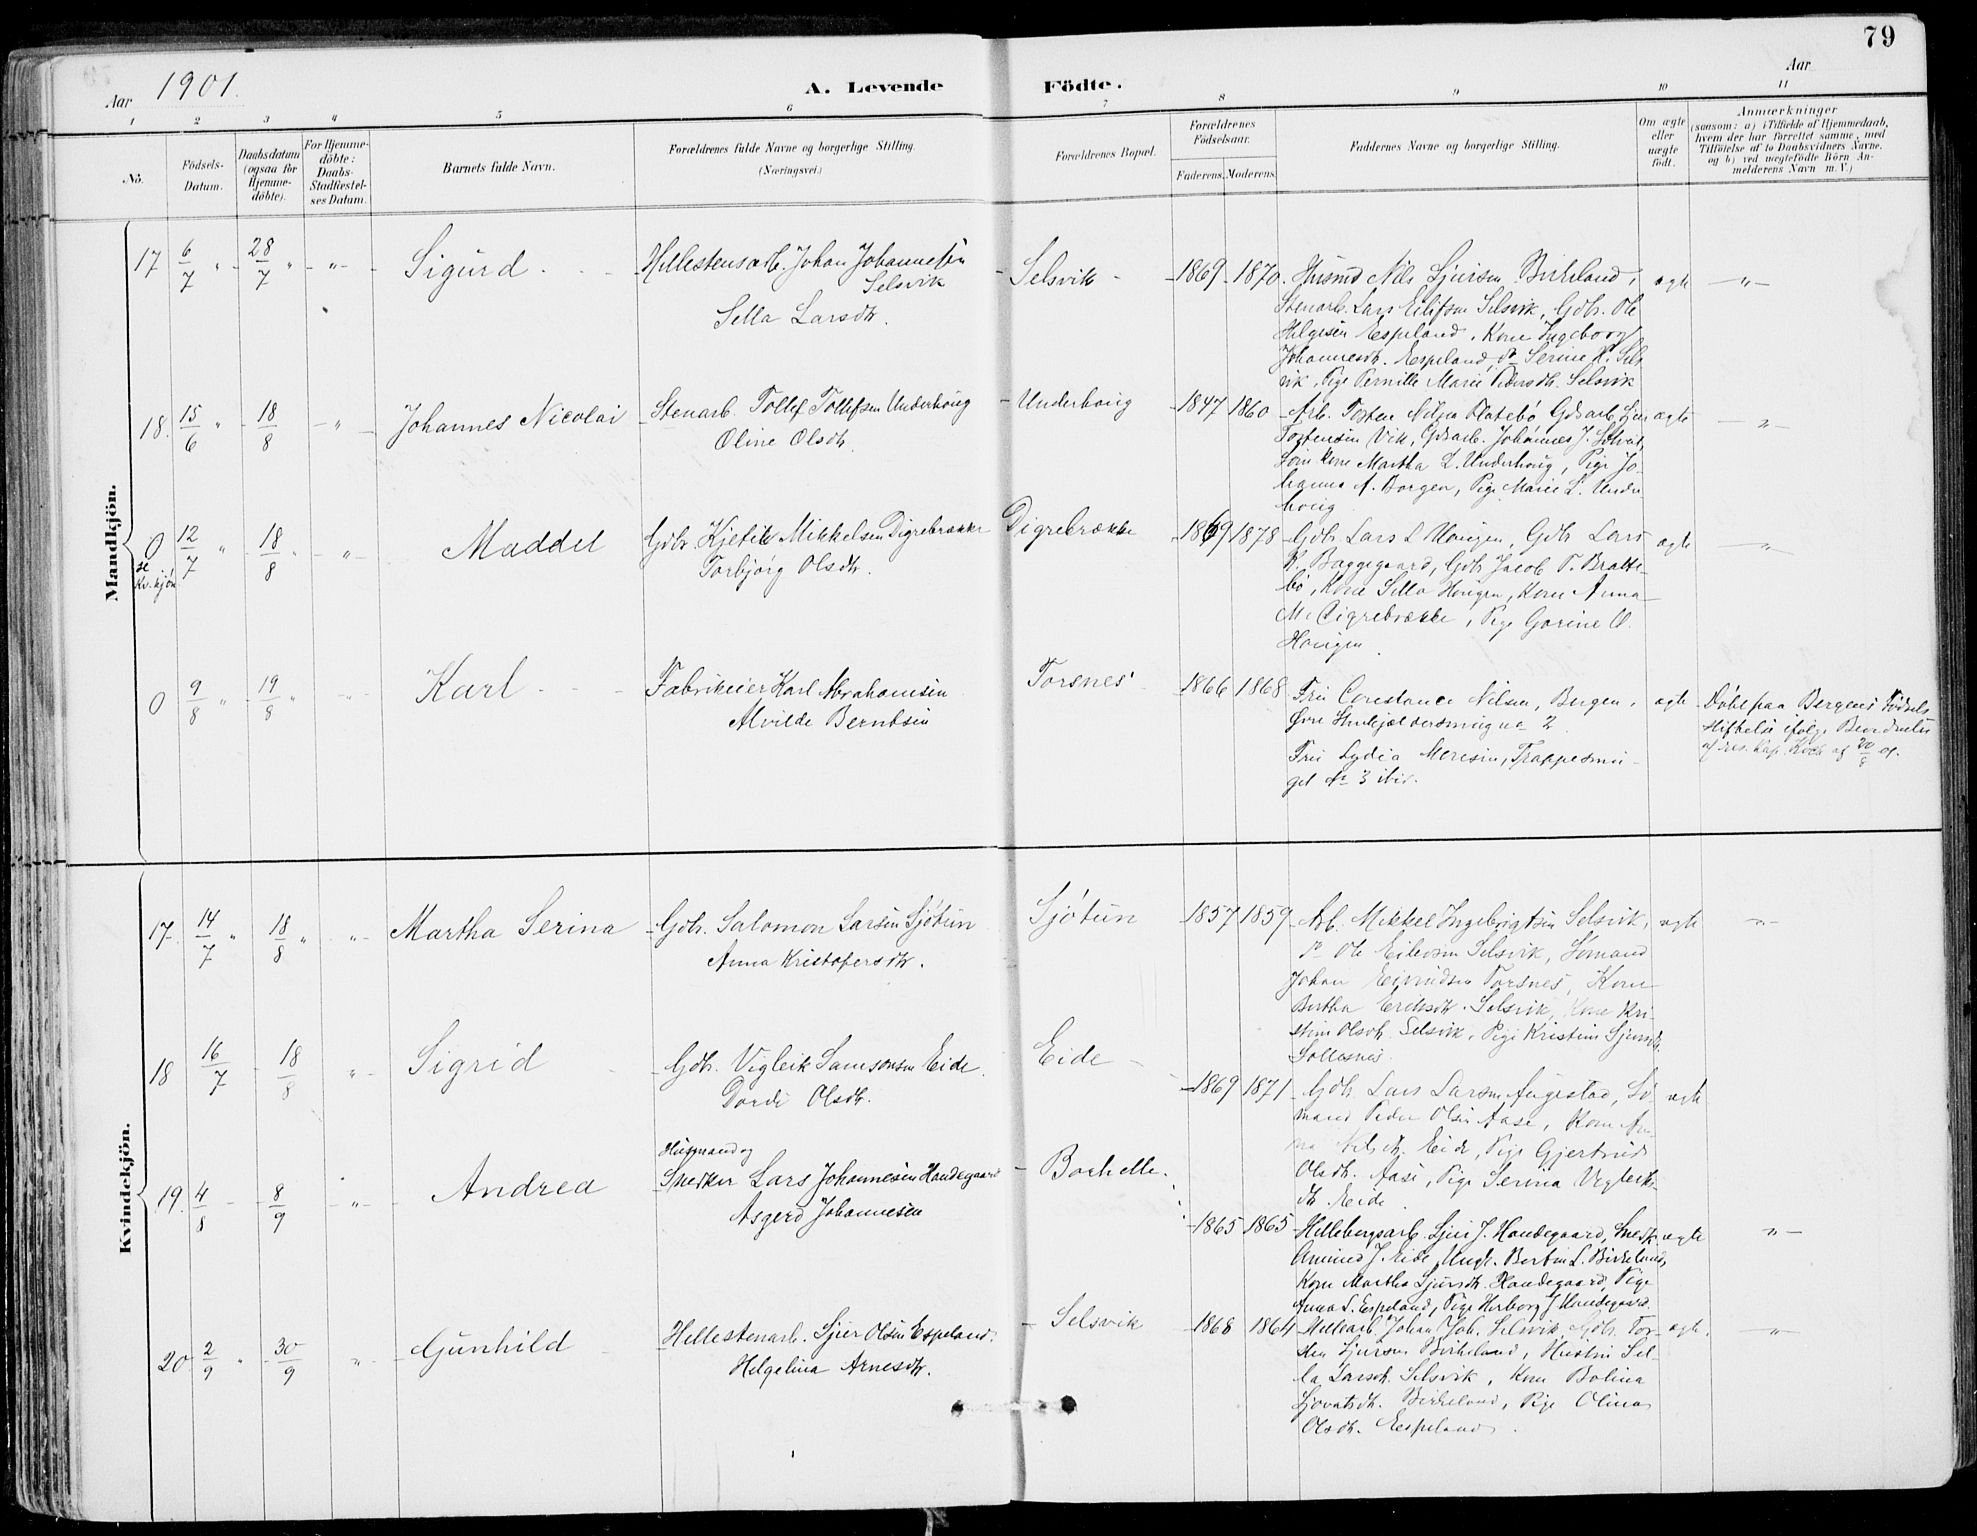 79
Aar 1901.
A. Levende Födte.
Aar
1 2 3 4 5 6 7 8 9 10 11
No.
Födsels-
Datum.
Daabsdatum
(ogsaa för
Hjemme-
döbte).
For Hjemme-
döbte:
Daabs-
Stadfæstel-
ses Datum.
Barnets fulde Navn.
Forældrenes fulde Navne og borgerlige Stilling.
(Næringsvei.)
Forældrenes Bopæl.
Forældrenes
Födselsaar.
Faderens. Moderens.
Faddernes Navne og borgerlige Stilling.
Om ægte
eller
uægte
födt.
Anmærkninger
(saasom: a) i Tilfælde af Hjemmedaab,
hvem der har forrettet samme, med
Tilföielse af to Daabsvidners Navne.
og b) ved uægtefödte Börn An-
melderens Navn m. V.)
Mandkjön.
17 6/7 " 28/7 " - " -
Sigurd
Hellestensarb. Johan Johannesen
Selsvik
Sella Larsdtr.
Selsvik
1869 1870
Husmd Nils Sjursen Birkeland,
Stenarb. Lars Eilifsen Selsvik, Gdbr. Ole
Helgesen Espeland, Kone Ingeborg
Johannesdtr. Espeland, Serine K. Sels
vik, Pige Pernille Marie Pedersdtr. Selsvik
ægte - " -
18. 15/6 " 18/8 - " -
Johannes Nicolai
Stenarb. Tollef Tollefsen Underhoug
Oline Olsdtr.
Underhoug
1847 1860
Arb. Nilsen Flatebö Gdsarb. Sjur
Tostensen Vik, Gdsarb. Johannes J.
kone Martha L. Underhoug, Pige Jo-
hanna A. Borgen, Pige Marie L. Under
houg
ægte - " -
0 12/7 " 18/8 " - " -
se
Kv.kjön
Maddel
Gdbr. Kjetil Mikkelsen Digrebrække
Torbjörg Olsdtr.
Digrebrække
1869 1878
Gdbr. Lars L Hougen, Gdbr. Lars
K. Baggegaard, Gdbr Jacob T. Bratte-
bö, Kone Sella Hougen, Kone Anna
M. Digrebrække, Pige Gorine O.
Hougen.
ægte - " -
0 9/8 " 19/8 " - " -
Karl
Fabrikeier Karl Abrahamsen
Alvilde Berntsen
Torsnes
1866 1868
Fru Constance Nilsen, Bergen,
Øvre 2
Fru Lydia Meresin, Trappesmu-
get No 3 ibid.
ægte
Döbt paa Bergens Födsels
stiftelse ifölge Bevidnelse
af res. Kap. Koch af 20/8 01.
Kvindekjön.
17. 14/7 " 18/8 " " -
Martha Serina
Gdbr. Salomon Larsen Sjötun
Anna Kristofersdtr.
Sjötun
1857 1859
Arb. Mikkel Ingebrigtsen Selsvik,
Ole Eilevsen Selsvik, Sömand
Johan Eivindsen Torsnes, Kone
Bertha Eriksdtr. Selsvik, Kone Kri-
stine Olsdtr. Selsvik, Pige Kristine Sjursdtr.
Sollesnes
ægte " -
18 16/7 - 18/8 " -
Sigrid
Gdbr. Vigleik Samsonsen Eide.
Dordi Olsdtr.
Eide
1869 1871
Gdbr. Lars Larsen Augestad, Sö
mand Peder Olsen Aase, Kone An-
na Nilsdtr. Eide, Pige Gjertrud
Olsdtr. Aase, Pige Serina Vigleiks-
dtr. Eide.
ægte
19. 4/8 - 8/9 - " -
Andrea
Husmand og
Snedker Lars Johannesen Handegaard
Asgerd Johannesen
Borhelle.
1865 1865
Hellebergsarb. Sjur J. Handegaard, Snedk.
Amund J. Eide, Ungk. Bertin L. Birkeland,
Kone Martha Sjursdtr. Handegaard, Pige
Anna S. Espeland, Pige Herborg J Handegaard.
ægte " -
20 2/9 " 30/9 " -
Gunhild
Hellestenarb. Sjur Olsen Espeland.
Helgelina Arnesdtr.
Selsvik
1868 1864
Hellearb. Johan Joh. Selsvik, Gdbr. Tor-
sten Sjursen Birkeland, Hustru Sel-
la Larsdt. Selsvik, Kone Bolina
Sjovatsdt. Birkeland, Pige Olina
Olsdt. Espeland.
ægte. - " -